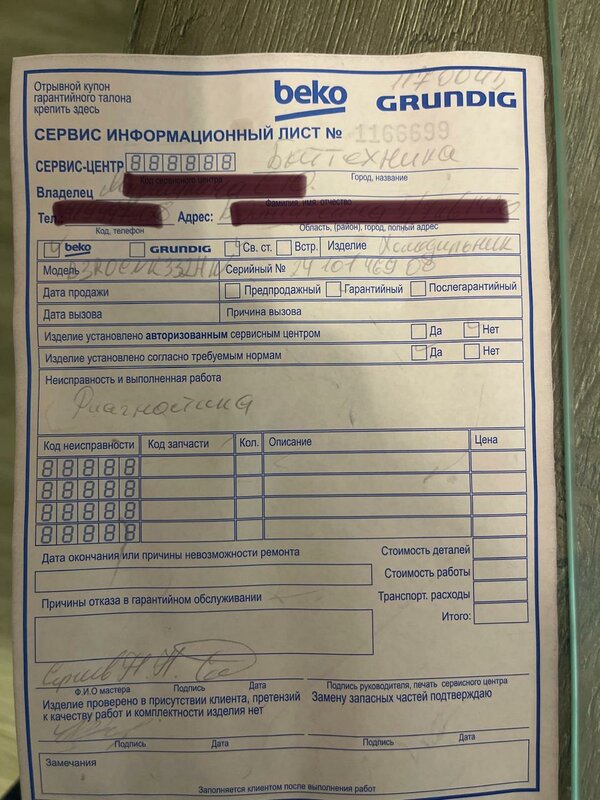 Отрывной купон
гарантийного талона
крепить здесь
beko GRUNDIG
СЕРВИС ИНФОРМАЦИОННЫЙ ЛИСТ № 1166699
СЕРВИС-ЦЕНТР
Код сервисного центра Город, название
Владелец
Фамилия, имя, отчество
Тел.: Адрес:
Код, телефон Область, (район), город, полный адрес
beko GRUNDIG Св. ст. Встр. Изделие Холодильник
Модель Серийный №
Дата продажи Предпродажный Гарантийный Послегарантийный
Дата вызова Причина вызова
Изделие установлено авторизованным сервисным центром Да Нет
Изделие установлено согласно требуемым нормам Да Нет
Неисправность и выполненная работа
Диагностика
Код неисправности Код запчасти Кол. Описание Цена
Дата окончания или причины невозможности ремонта
Стоимость деталей
Стоимость работы
Транспорт. расходы
Итого:
Причины отказа в гарантийном обслуживании
Ф.И.О мастера Подпись Дата
Подпись руководителя, печать сервисного центра
Изделие проверено в присутствии клиента, претензий
к качеству работ и комплектности изделия нет
Замену запасных частей подтверждаю
Подпись Дата Подпись Дата
Замечания
Заполняется клиентом после выполнения работ